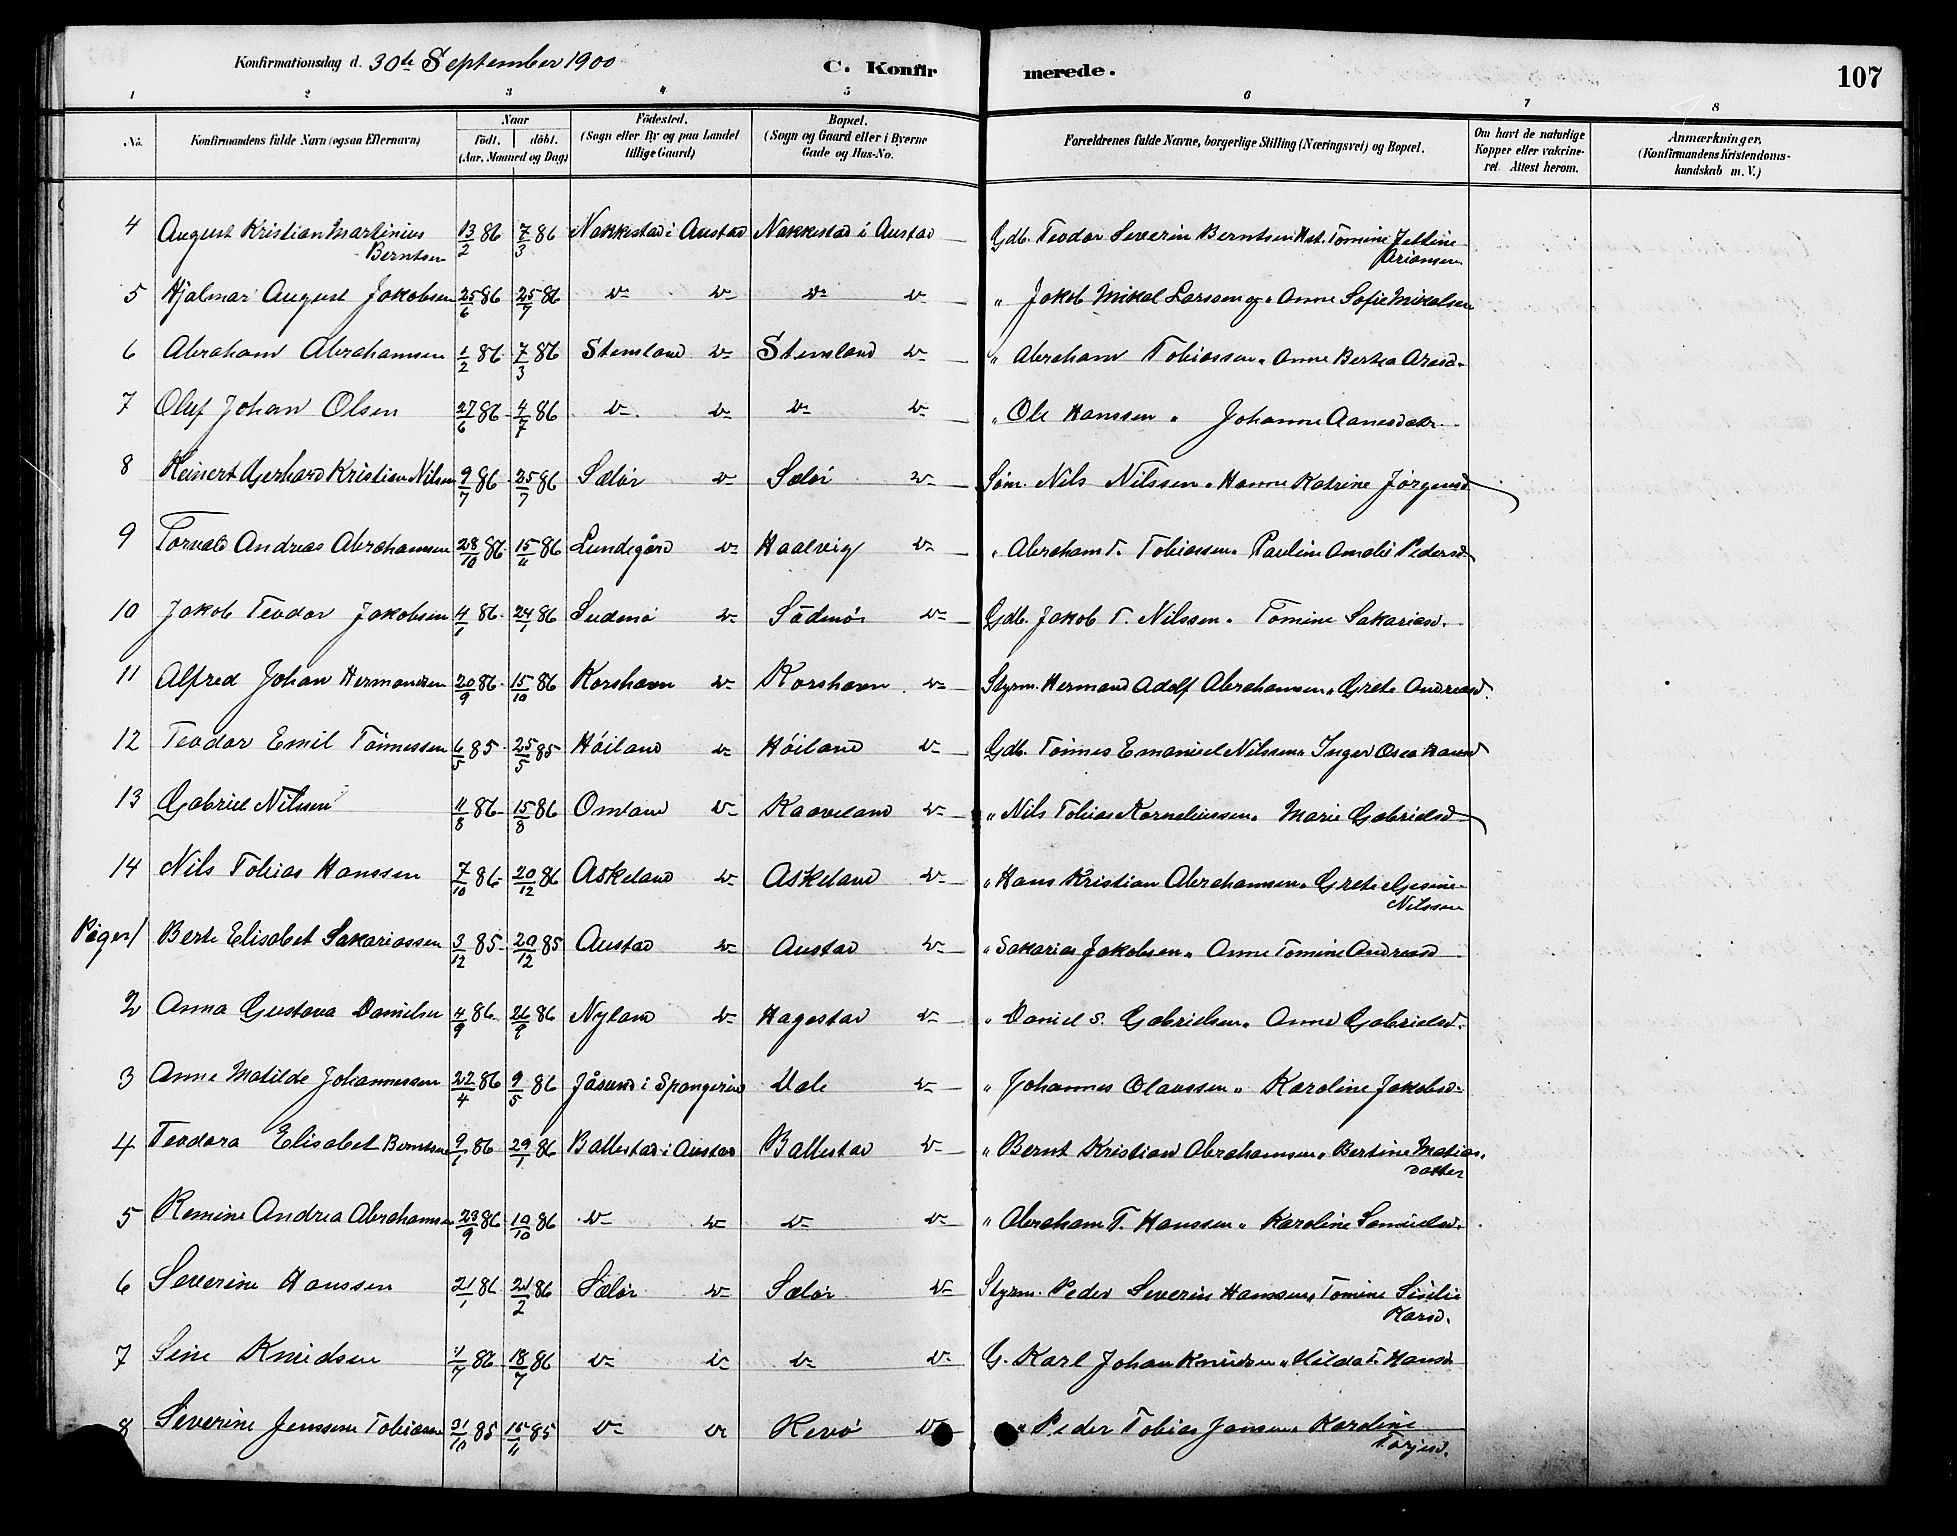 Konfirmationsdag d. 30de September 1900
C. Konfirmerede.
107
1 2 3 4 5 6 7 8
No. Konfirmandens fulde Navn (ogsaa Efternavn) Naar födt. döbt. (Aar, Maaned og Dag) Födested. (Sogn eller By og paa Landet tillige Gaard) Bopæl. (Sogn og Gaard eller i Byerne Gade og Hus-No. Forældrenes fulde Navne, borgerlige Stilling (Næringsvei) og Bopæl. Om havt de naturlige Kopper eller vakcineret. Attest herom. Anmærkninger, (Konfirmandens Kristendomskundskab m.V.)
4 August Kristian Martinius Berntsen 13/2 86 7/3 86 Nakkestad i Austad Nakkestad i Austad Gdb. Teodor Severin Berntsen Hst. Tomine Jettine
5 Hjalmar August Jakobsen 25/6 86 25/7 86 do do do do " Jakob Mikal Larssen og " Anne Sofie Mikalsen
6 Abraham Abrahamsen 1/2 86 7/3 86 Stensland do Stensland do " Abraham Tobiassen " Anne Bertea
7 Oluf Johan Olsen 27/6 86 4/7 86 do do do do " Ole Hanssen " Johanne Aanesdatr.
8 Reinert Gerhard Kristian Nilsen 9/7 86 25/7 86 Sælør do Sælør do Søm. Nils Nilssen " Hanne Katrine Jørgensd
9 Torvald Andreas Abrahamsen 28/10 86 15/11 86 Lundegård do Haalvig do " Abraham T. Tobiassen " Pauline Amalie Pedersd
10 Jakob Teodor Jakobsen 4/1 86 24/1 86 do do Gdb. Jakob T. Nilssen " Tomine Sakariasd.
11 Alfred Johan Hermandsen 20/9 86 15/10 86 Korshavn do Korshavn do Styrm. Hermand Adolf Abrahamsen " Grete Andreasd.
12 Teodor Emil Tönnessen 6/5 85 25/5 85 Höiland do Höiland do Gdb. Tönnes Emanuel Nilssen " Inger Hansd
13 Gabriel Nilssen 11/8 86 15/8 86 Omland do Kaaveland do " Nils Tobias Korneliussen " Marie Gabrielsd
14 Nils Tobias Hanssen 7/10 86 20/12 86 Askeland do Askeland do " Hans Kristian Abrahamsen " Grete Gesine Nilssen
Piger 1 Berte Elisabet Sakariassen 3/12 85 20/12 85 Austad do Austad do " Sakarias Jakobsen " Anne Tomine Andreasd
2 Anna Gustava Danielsen 4/9 86 26/9 86 Nyland do Hagestad do " Daniel S. Gabrielsen " Anne Gabrielsd.
3 Anne Matilde Johannessen 22/4 86 9/5 86 Jåsund i Spangerid Vale do " Johannes Olaussen " Karoline Jakobsd
4 Teodora Elisabet Berntsen 9/1 86 29/1 86 Ballestad i Austad Ballestad do " Bernt Kristian Abrahamsen " Bertine Matias datter
5 Ramine Andrea Abrahamsen 23/9 86 10/10 86 do do do do " Abraham T. Hanssen " Karoline Samuelsd.
6 Severine Hanssen 21/1 86 21/2 86 Sælør do Sælør do Styrm. Peder Severin Hanssen " Tomine Sisilie
7 Sine Knudsen 1/7 86 18/7 86 do do do do G. Karl Johan Knudsen " Hilda T. Hansd
8 Severine Jenssine Tobiassen 21/10 85 15/11 85 do do Revö do " Peder Tobias Jansen " Karoline Torjusd.